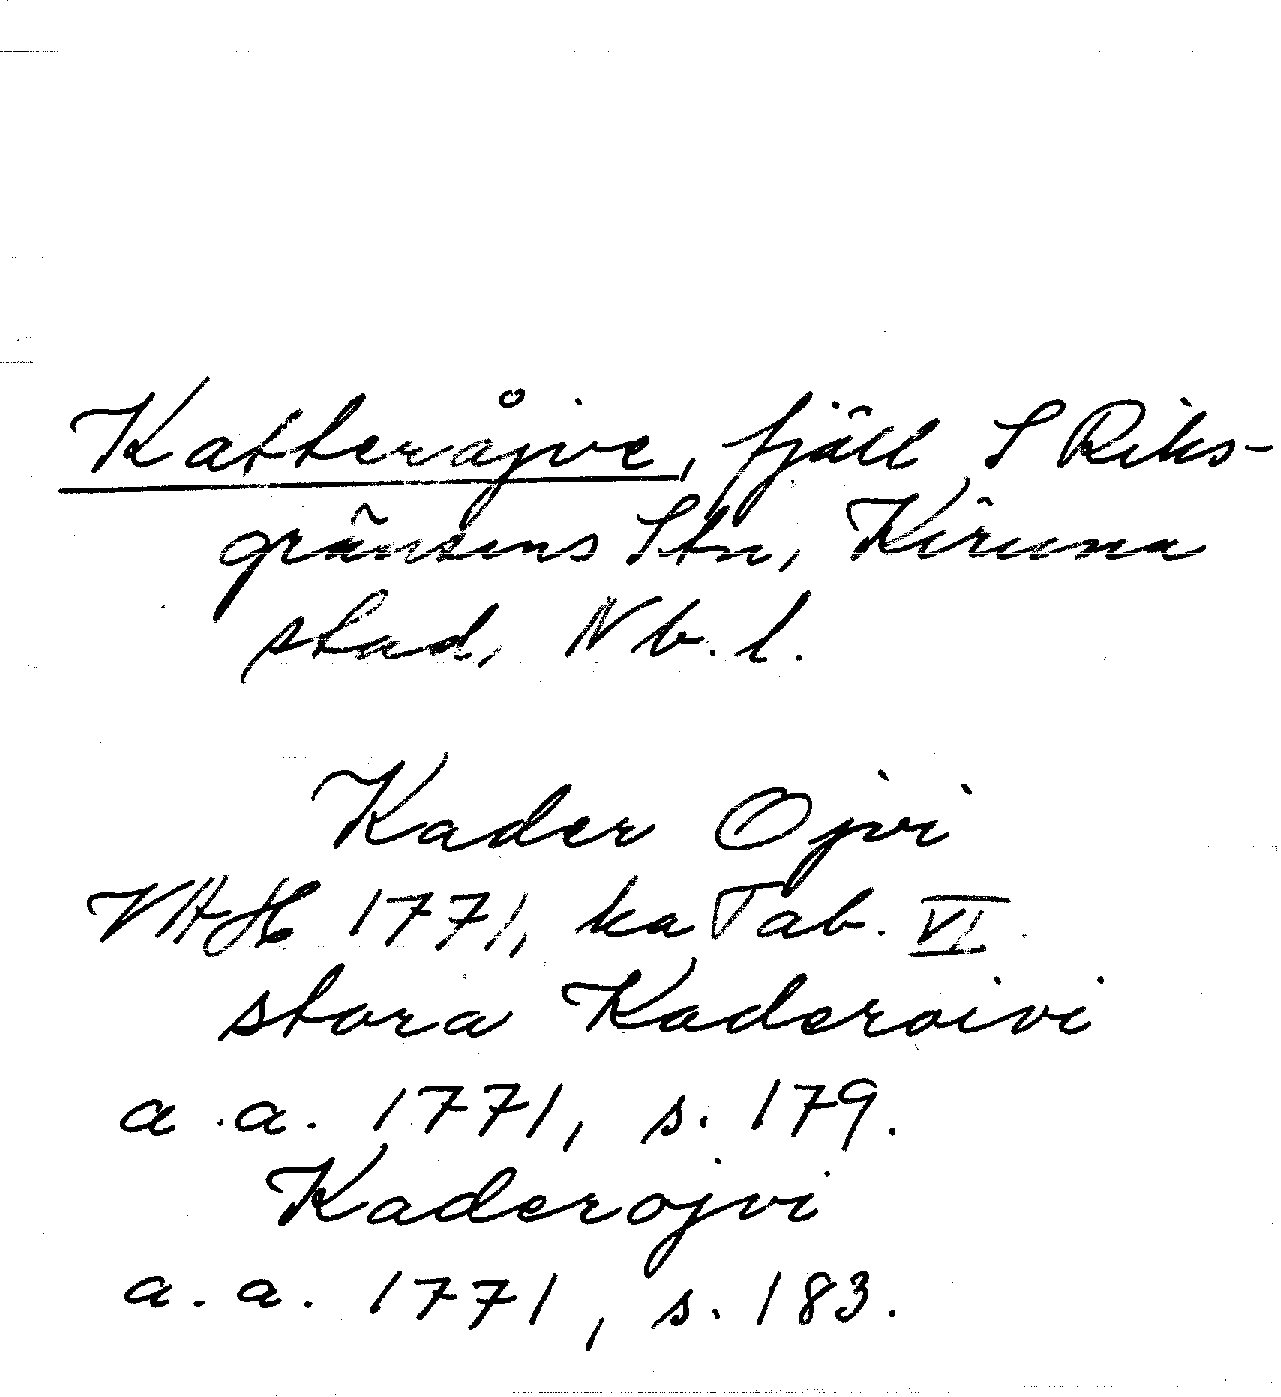 Katteråjve, fjäll S Riks-
gränsens Stn, Kiruna
stad, Nb. l.
Kader Ojvi
VAH 1771, ka Tab. VI
stora Kaderoivi
a.a. 1771, s. 179.
Kaderojvi
a.a. 1771, s. 183.